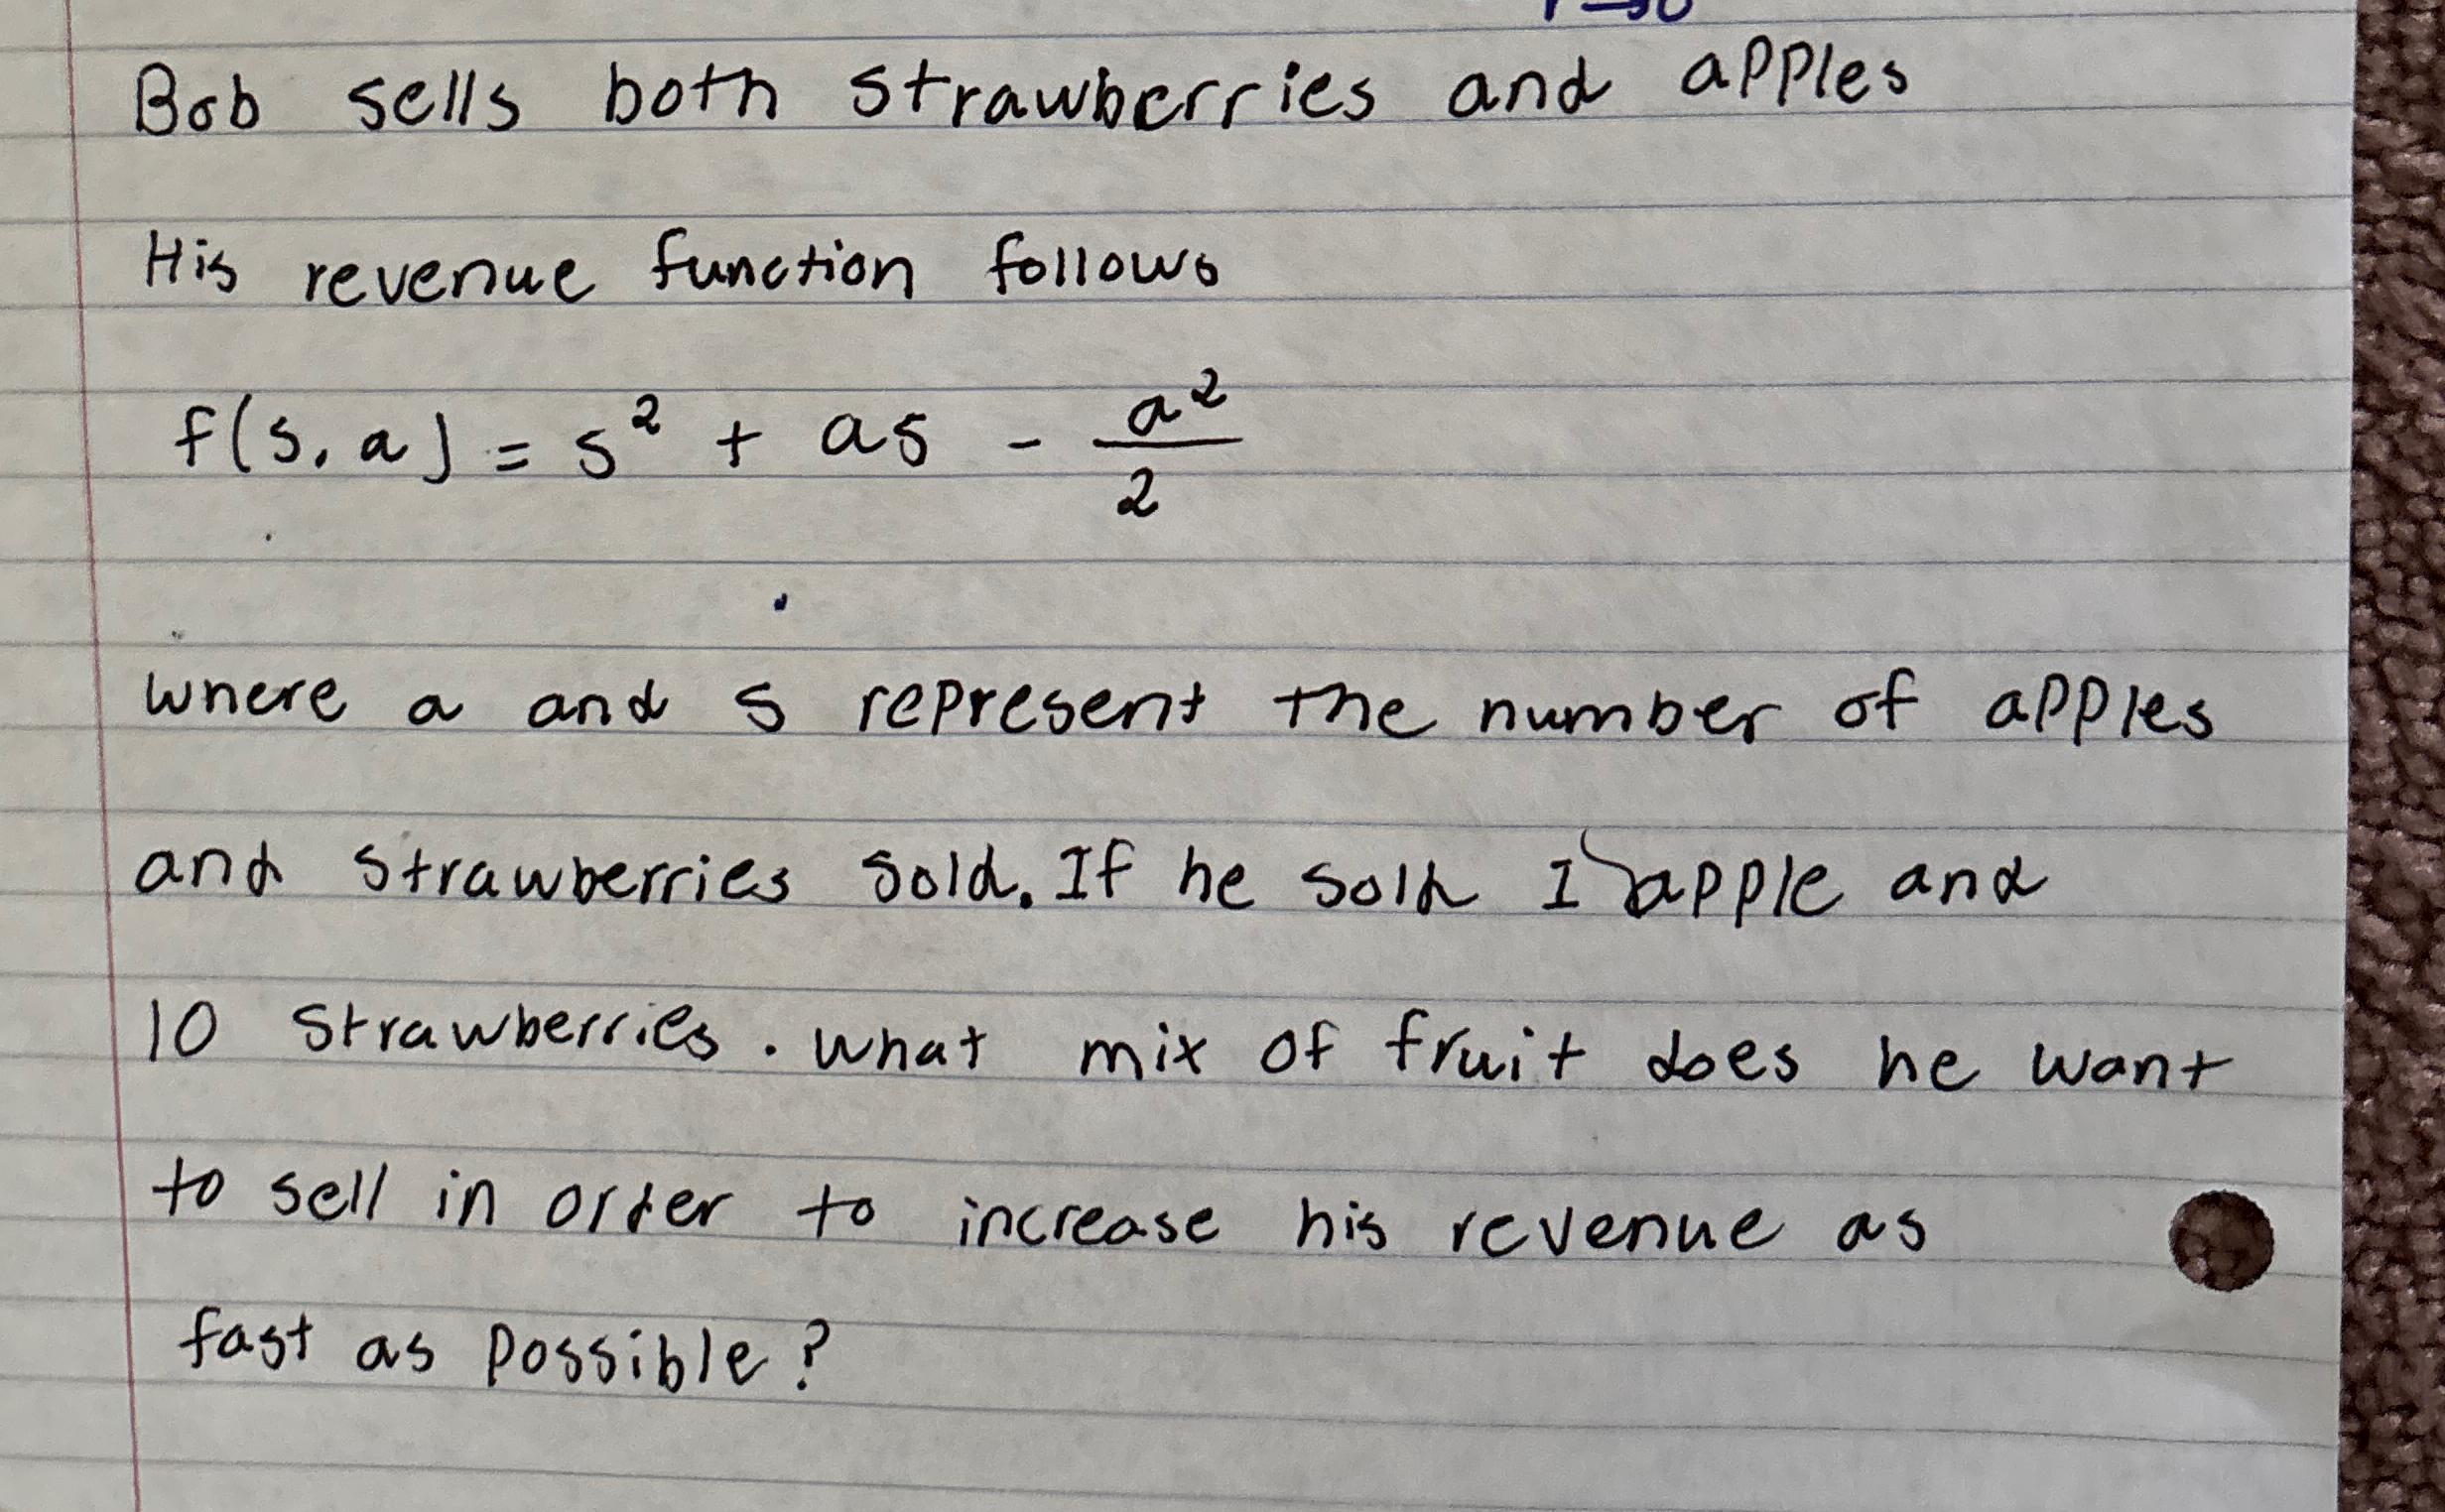 Bob sells both strawberries and apples
His revenue function follows
f(s, a) = s² + as - a²/2
where a and s represent the number of apples
and strawberries sold. If he sold 1 apple and
10 strawberries. what mix of fruit does he want
to sell in order to increase his revenue as
fast as possible?